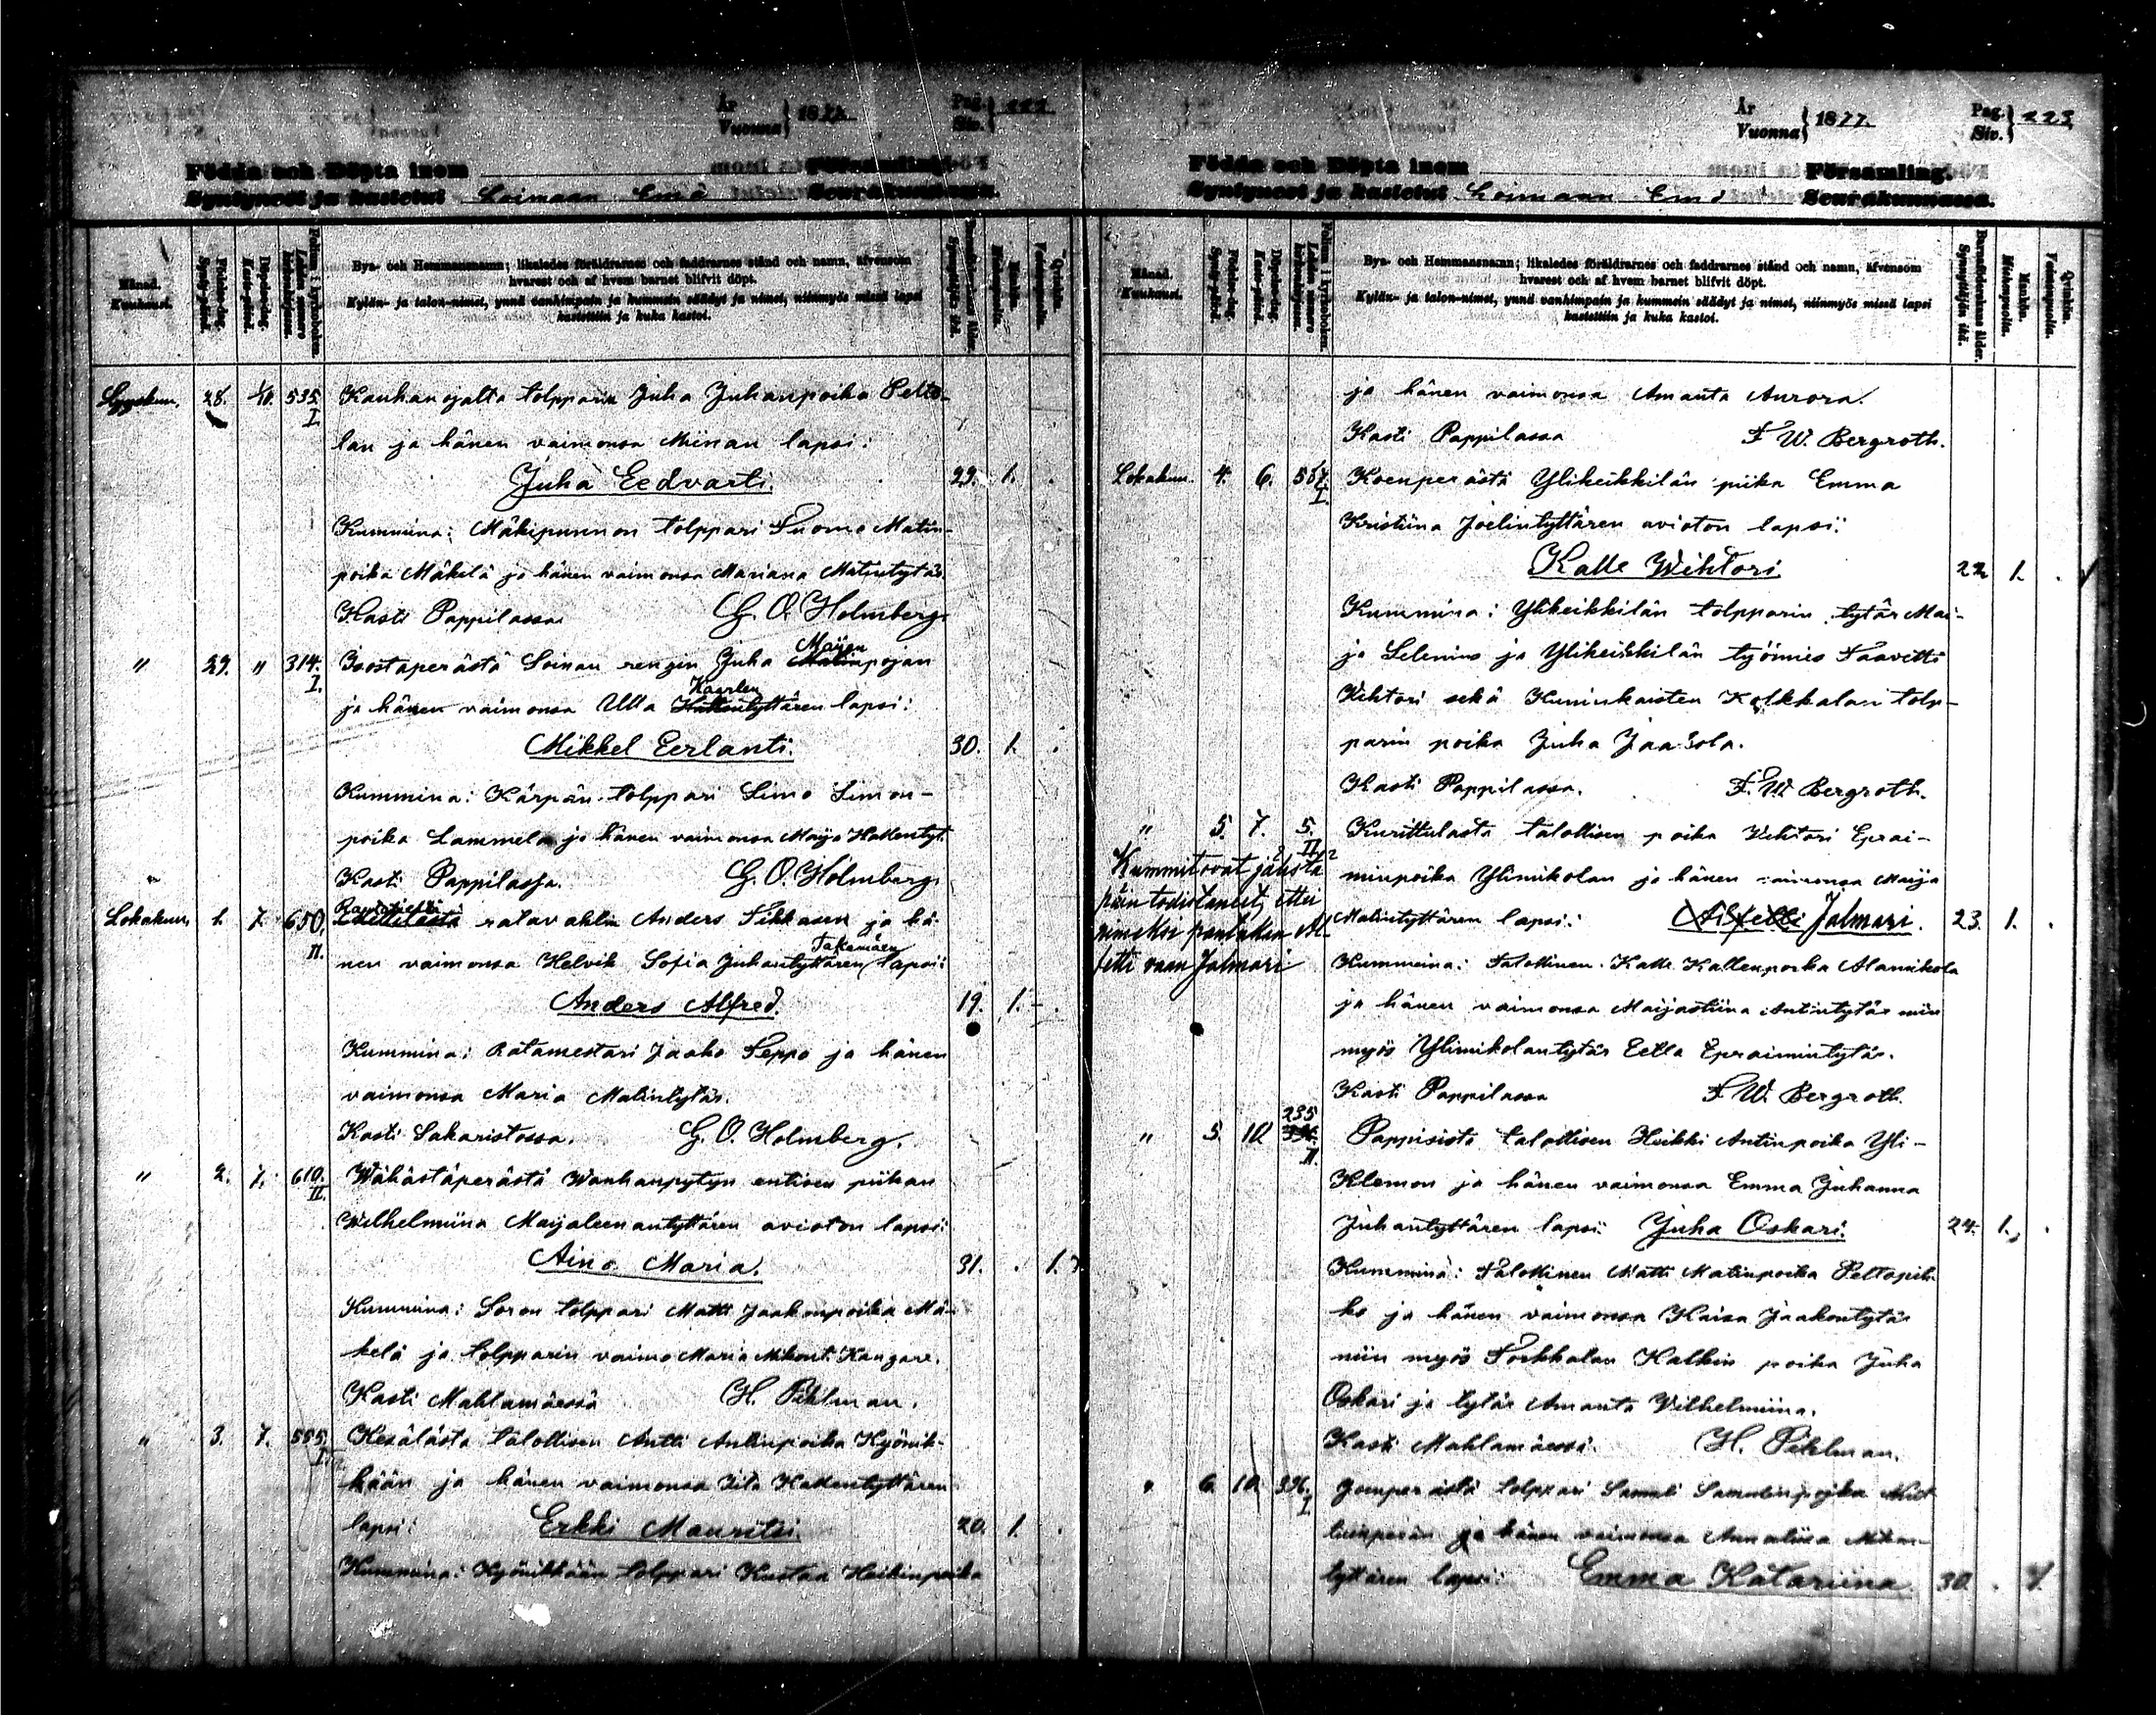 År
Vuonna } 1877.
Pag.
Siv. } 222.
Födda och Döpta inom Församling.
Syntyneet ja kastetut Loimaan Emä Seurakunnassa.
Månad.
Kuukausi.
Födelse-dag.
Synty-päivä.
Döpelse-dag.
Kaste-päivä.
Folium i kyrkoboken.
Lehden numero kirkonkirjassa.
Bys- och Hemmansnamn; likaledes föräldrarnes och faddrarnes stånd och namn, äfvensom
hvarest och af hvem barnet blifvit döpt.
Kylän- ja talon-nimet, ynnä vanhimpain ja kummein säädyt ja nimet, niinmyös missä lapsi
kastettiin ja kuka kastoi.
Barnaföderskans ålder.
Synnyttäjän ikä.
Mankön.
Miehenpuolia.
Qvinkön.
Vaimonpuolia.
Syyskuu. 28. 1/10. 535. I. Kauhanojalta tolpparin Juha Juhanpoika Pelto-
lan ja hänen vaimonsa Miinan lapsi:
Juha Eedvarti. 29. 1.
Kummina: Mäkipunnon tolppari Tuomo Matin-
poika Mäkelä ja hänen vaimonsa Mariana Matintytär
Kasti Pappilassa. G. O. Holmberg.
" 29. " 314. I. Joostaperästä Soinan rengin Juha Maijan Matinpojan
ja hänen vaimonsa Ulla Kaarlen lapsi:
Mikkel Eerlanti. 30. 1.
Kummina: Kärpän tolppari Simo Simon-
poika Lammela ja hänen vaimonsa Maija Hallentyt.
Kasti Pappilassa. G. O. Holmberg.
Lokakuu 1. 7. 650. II. ratavahdin Anders Tikkasen ja hä-
nen vaimonsa Helvik Sofia Juhantyttären Takamäen lapsi:
Anders Alfred. 19. 1.
Kummina: Ratamestari Jaako Seppo ja hänen
vaimonsa Maria Matintytär.
Kasti Sakaristossa. G. O. Holmberg.
" 2. 7. 610. II. Wähästäperästä Wanhanpytyn entisen piikan
Wilhelmiina Maijaleenantyttären avioton lapsi:
Aino Maria. 31. 1.
Kummina: Soron tolppari Matti Jaakonpoika Mä-
kelä ja tolpparin vaimo Maria Mikont. Kangare.
Kasti Mahlamäessä H. Pihlman.
" 3. 7. 555. I. Kesälästa talollisen Antti Antinpoika Hyönik-
kään ja hänen vaimonsa Iita Kallentyttären
lapsi: Erkki Mauritsi. 20. 1.
Kummina: Hyönikkään tolppari Kustaa Heikinpoika
År
Vuonna } 1877.
Pag.
Siv. } 223
Födda och Döpta inom Församling.
Syntyneet ja kastetut Loimaan Emä Seurakunnassa.
Månad.
Kuukausi.
Födelse-dag.
Synty-päivä.
Döpelse-dag.
Kaste-päivä.
Folium i kyrkoboken.
Lehden numero kirkonkirjassa.
Bys- och Hemmansnamn; likaledes föräldrarnes och faddrarnes stånd och namn, äfvensom
hvarest och af hvem barnet blifvit döpt.
Kylän- ja talon-nimet, ynnä vanhimpain ja kummein säädyt ja nimet, niinmyös missä lapsi
kastettiin ja kuka kastoi.
Barnaföderskans ålder.
Synnyttäjän ikä.
Mankön.
Miehenpuolia.
Qvinkön.
Vaimonpuolia.
ja hänen vaimonsa Amanta Aurora.
Kasti Pappilassa F W. Bergroth.
Lokakuu. 4. 6. I. Koenperästä Ylikeikkilän piika Emma
Kristiina Joelintyttären avioton lapsi:
Kalle Wihtori 22 1.
Kummina: Ylikeikkilän tolpparin tytär Mai-
ja Selenius ja Ylikeikkilän työmies Taavetti
Wihtori sekä Kuninkaisten Kolkkalan tolp-
parin poika Juha Jaakola.
Kasti Pappilassa. F. W. Bergroth.
" 5. 7. 5. II. Kurittulasta talollisen poika Wihtori Eprai-
minpoika Ylimikolan ja hänen vaimonsa Maija
Matintyttären lapsi: Alfetti Jalmari. 23. 1.
Kummitovat jälestä
päin todistaneet, ettei
nimeksi pantukaan Al-
fetti vaan Jalmari
Kummina: Talollinen Kalle Kallenpoika Alamikola
ja hänen vaimonsa Maijastiina Antintytär niin
myös Ylimikolan tytär Eetla Epraimintytär.
Kasti Pappilassa F W. Bergroth.
" 5. 10. 235 II. Pappisista talollisen Heikki Antinpoika Yli-
Klemon ja hänen vaimonsa Emma Juhanna
Juhantyttären lapsi: Juha Oskari. 24. 1.
Kummina: Talollinen Matti Matinpoika Peltopih-
ko ja hänen vaimonsa Kaisa Jaakontytär
niin myös Torkkalan Kalkin poika Juha
Oskari ja tytär Amanta Vilhelmiina.
Kasti Mahlamäessä. H. Pihlman.
" 6. 10. 396. I. tolppari Samuli Samulinpoika
ja hänen vaimonsa Annaliisa Mikon-
tyttären lapsi: Emma Katariina 30. 1.